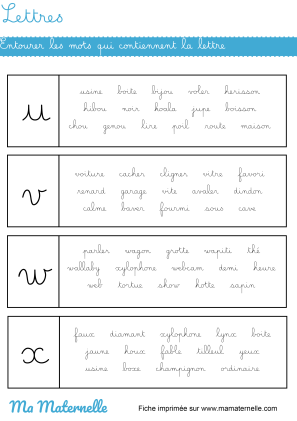 Lettres
Entourer les mots qui contiennent la lettre
u
usine boite bijou voler herisson
hibou noir koala jupe boisson
chou genou lire poil route maison
v
voiture cacher cligner vitre favori
renard garage vite avaler dindon
calme baver fourmi sous cave
w
parler wagon grotte wapiti thé
wallaby xylophone webcam demi heure
web tortue show hotte sapin
x
faux diamant xylophone lynx boite
jaune houx fable tilleul yeux
usine boxe champignon ordinaire
Ma Maternelle
Fiche imprimée sur www.mamaternelle.com